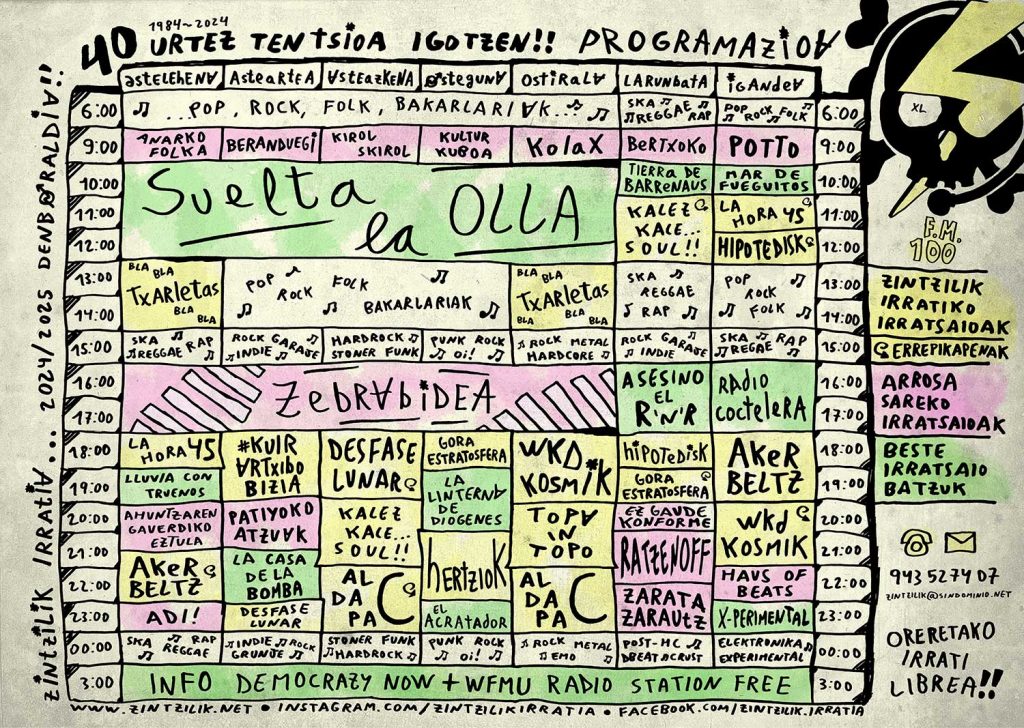 1984~2024
40 URTEZ TENTSIOA IGOTZEN!! PROGRAMAZIOA
ZINTZILIK IRRATIA... 2024/2025 DENBORALDIA!!
ASTELEHENA ASTEARTEA ASTEAZKENA OSTEGUNA OSTIRALA LARUNBATA IGANDEA
6:00 ...POP, ROCK, FOLK, BAKARLARIAK... SKA REGGAE RAP POP ROCK FOLK 6:00
9:00 ANARKO FOLKA BERANDUEGI KIROL SKIROL KULTUR KUBOA KOLAX BERTXOKO POTTO 9:00
10:00 SUELTA la OLLA TIERRA DE BARRENAUS MAR DE FUEGUITOS 10:00
11:00 KALEZ KALE... SOUL!! LA HORA 45 11:00
12:00 HIPOTEDISK 12:00
13:00 BLA BLA TXARLETAS BLA BLA BLA POP ROCK FOLK BAKARLARIAK BLA BLA TXARLETAS BLA BLA BLA SKA REGGAE RAP POP ROCK FOLK 13:00
14:00 14:00
15:00 SKA RAP REGGAE ROCK GARAGE INDIE HARDROCK STONER FUNK PUNK ROCK OI! ROCK METAL HARDCORE ROCK GARAGE INDIE SKA RAP REGGAE 15:00
16:00 ZEBRABIDEA ASESINO EL R'N'R RADIO COCTELERA 16:00
17:00 17:00
18:00 LA HORA 45 #KUIR ARTXIBO BIZIA DESFASE LUNAR GORA ESTRATOSFERA WKD KOSMIK HIPOTEDISK AKER BELTZ 18:00
19:00 LLUVIA CON TRUENOS LA LINTERNA DE DIOGENES GORA ESTRATOSFERA 19:00
20:00 AHUNTZAREN GAUERDIKO EZTULA PATIYOKO ATZUAK KALEZ KALE... SOUL!! TOPA IN TOPO EZ GAUDE KONFORME WKD KOSMIK 20:00
21:00 AKER BELTZ LA CASA DE LA BOMBA HERTZIOK RATZENOFF 21:00
22:00 ALDAPA C ALDAPA C ZARATA ZARAUTZ HAUS OF BEATS 22:00
23:00 ADI! DESFASE LUNAR EL ACRATADOR X-PERIMENTAL 23:00
00:00 SKA RAP REGGAE INDIE ROCK GRUNJE STONER FUNK HARDROCK PUNK ROCK OI! ROCK METAL EMO POST-HC DBEAT CRUST ELEKTRONIKA EXPERIMENTAL 00:00
3:00 INFO DEMOCRAZY NOW + WFMU RADIO STATION FREE 3:00
WWW.ZINTZILIK.NET • INSTAGRAM.COM/ZINTZILIKIRRATIA • FACEBOOK.COM/ZINTZILIK.IRRATIA
XL
F.M.
100
ZINTZILIK
IRRATIKO
IRRATSAIOAK
ERREPIKAPENAK
ARROSA
SAREKO
IRRATSAIOAK
BESTE
IRRATSAIO
BATZUK
943 52 74 07
ZINTZILIK@SINDOMINIO.NET
ORERETAKO
IRRATI
LIBREA!!